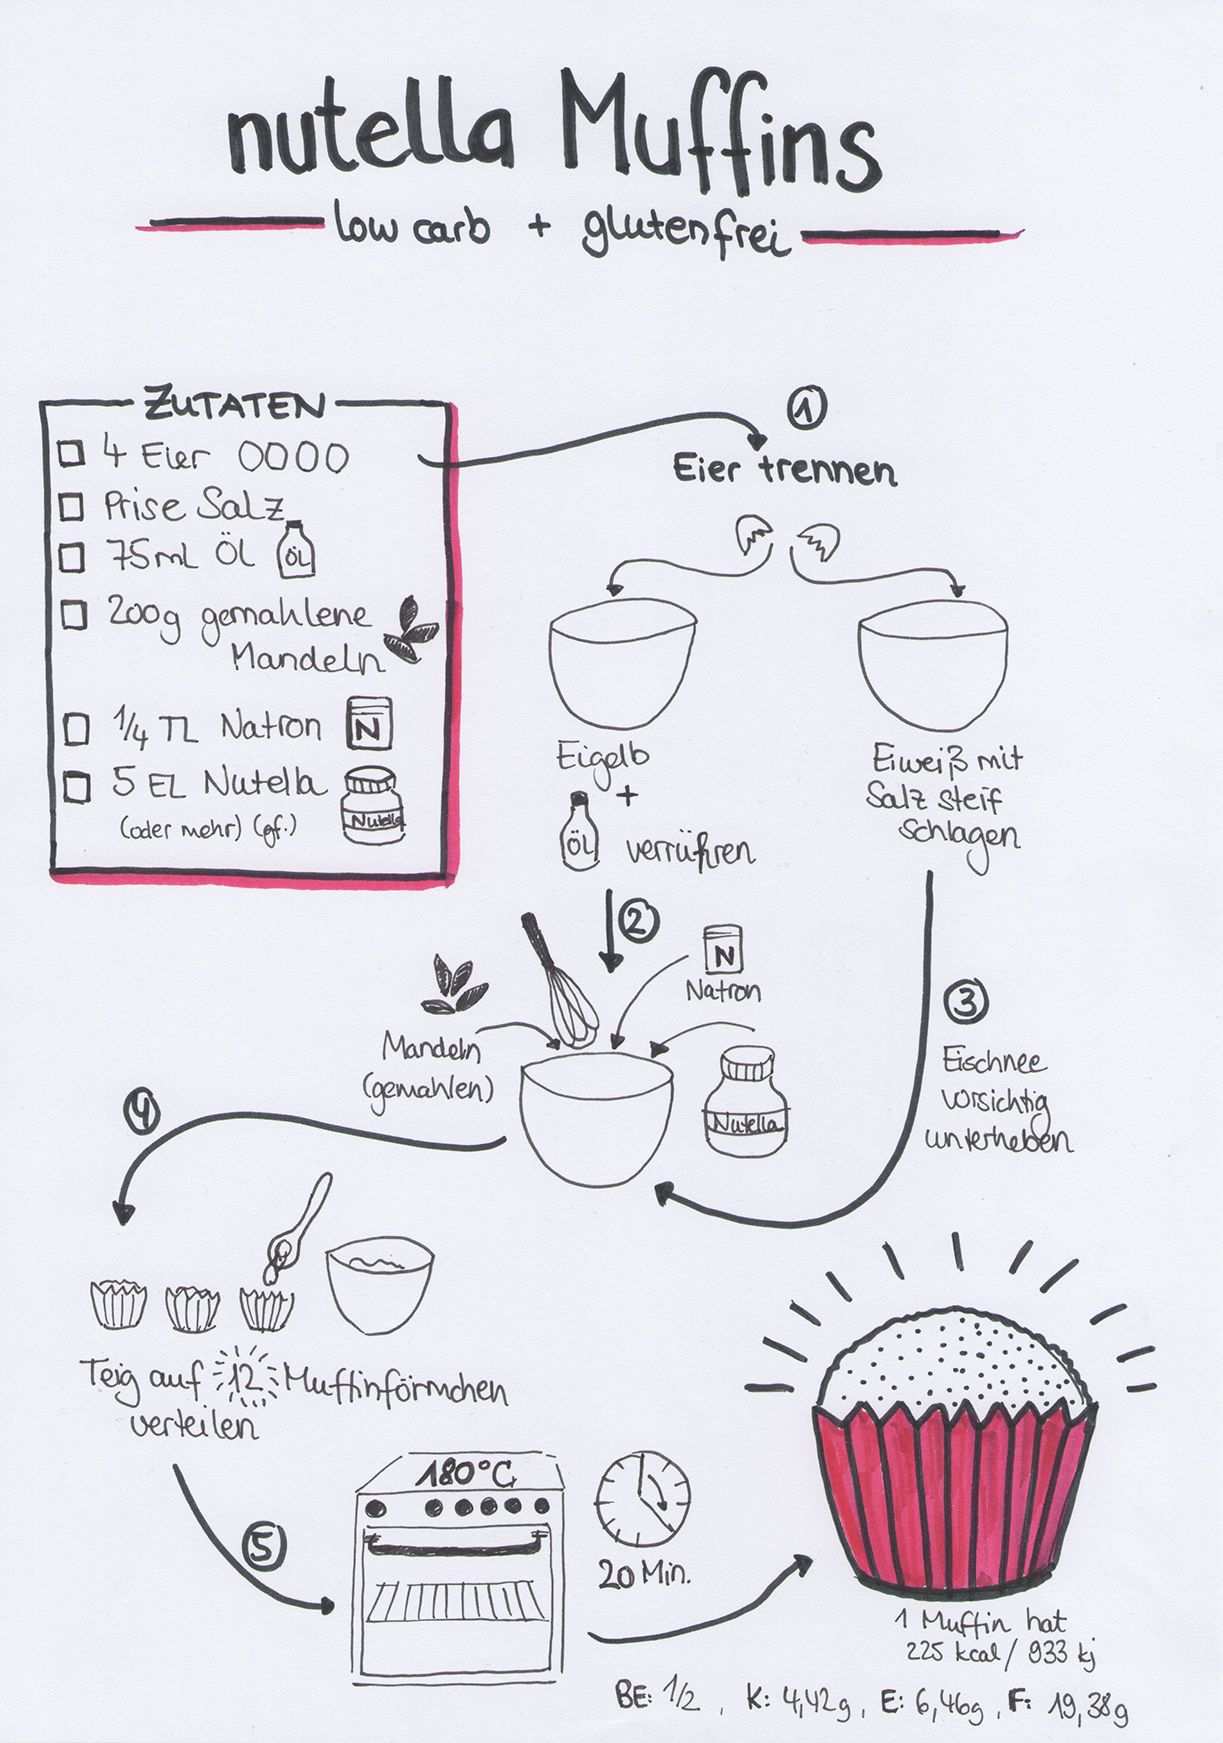 nutella Muffins
low carb + glutenfrei
ZUTATEN
4 Eier
Prise Salz
75ml Öl
ÖL
200g gemahlene
Mandeln
1/4 TL Natron
N
5 EL Nutella
(oder mehr) (gf.)
Nutella
1
Eier trennen
Eigelb
+
ÖL verrühren
Eiweiß mit
Salz steif
schlagen
2
N
Natron
Mandeln
(gemahlen)
Nutella
3
Eischnee
vorsichtig
unterheben
4
Teig auf 12 Muffinförmchen
verteilen
5
180°C
20 Min.
1 Muffin hat
225 kcal / 933 kj
BE: 1/2 , K: 4,42g , E: 6,46g , F: 19,38g